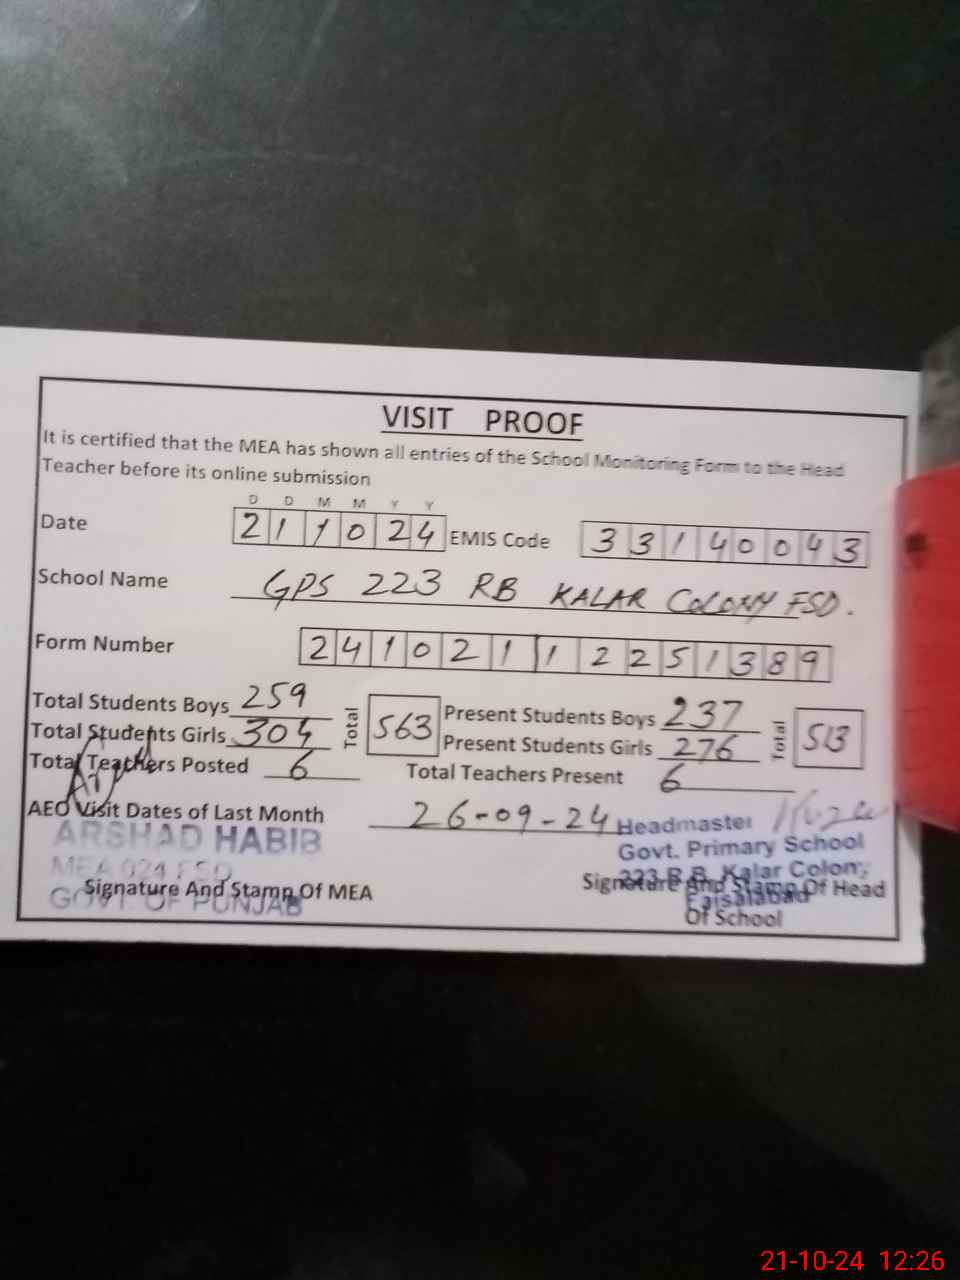 VISIT PROOF
It is certified that the MEA has shown all entries of the School Monitoring Form to the Head
Teacher before its online submission
D D M M Y Y
Date 211024 EMIS Code 33140043
School Name GPS 223 RB KALAR COLONY FSD.
Form Number 24102112251389
Total Students Boys 259 Total 563 Present Students Boys 237 Total 513
Total Students Girls 304 Present Students Girls 276
Total Teachers Posted 6 Total Teachers Present 6
AEO Visit Dates of Last Month 26-09-24
ARSHAD HABIB
MEA 024 FSD
GOVT. OF PUNJAB
Signature And Stamp Of MEA
Headmaster
Govt. Primary School
223 R.B. Kalar Colony
Faisalabad
Signature And Stamp Of Head
Of School
21-10-24 12:26